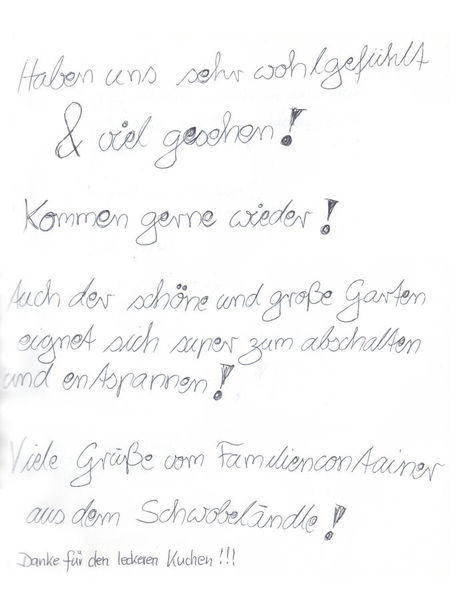 Haben uns sehr wohlgefühlt
& viel gesehen!
Kommen gerne wieder!
Auch der schöne und große Garten
eignet sich super zum abschalten
und entspannen!
Viele Grüße vom Familiencontainer
aus dem Schwobeländle!
Danke für den leckeren Kuchen!!!